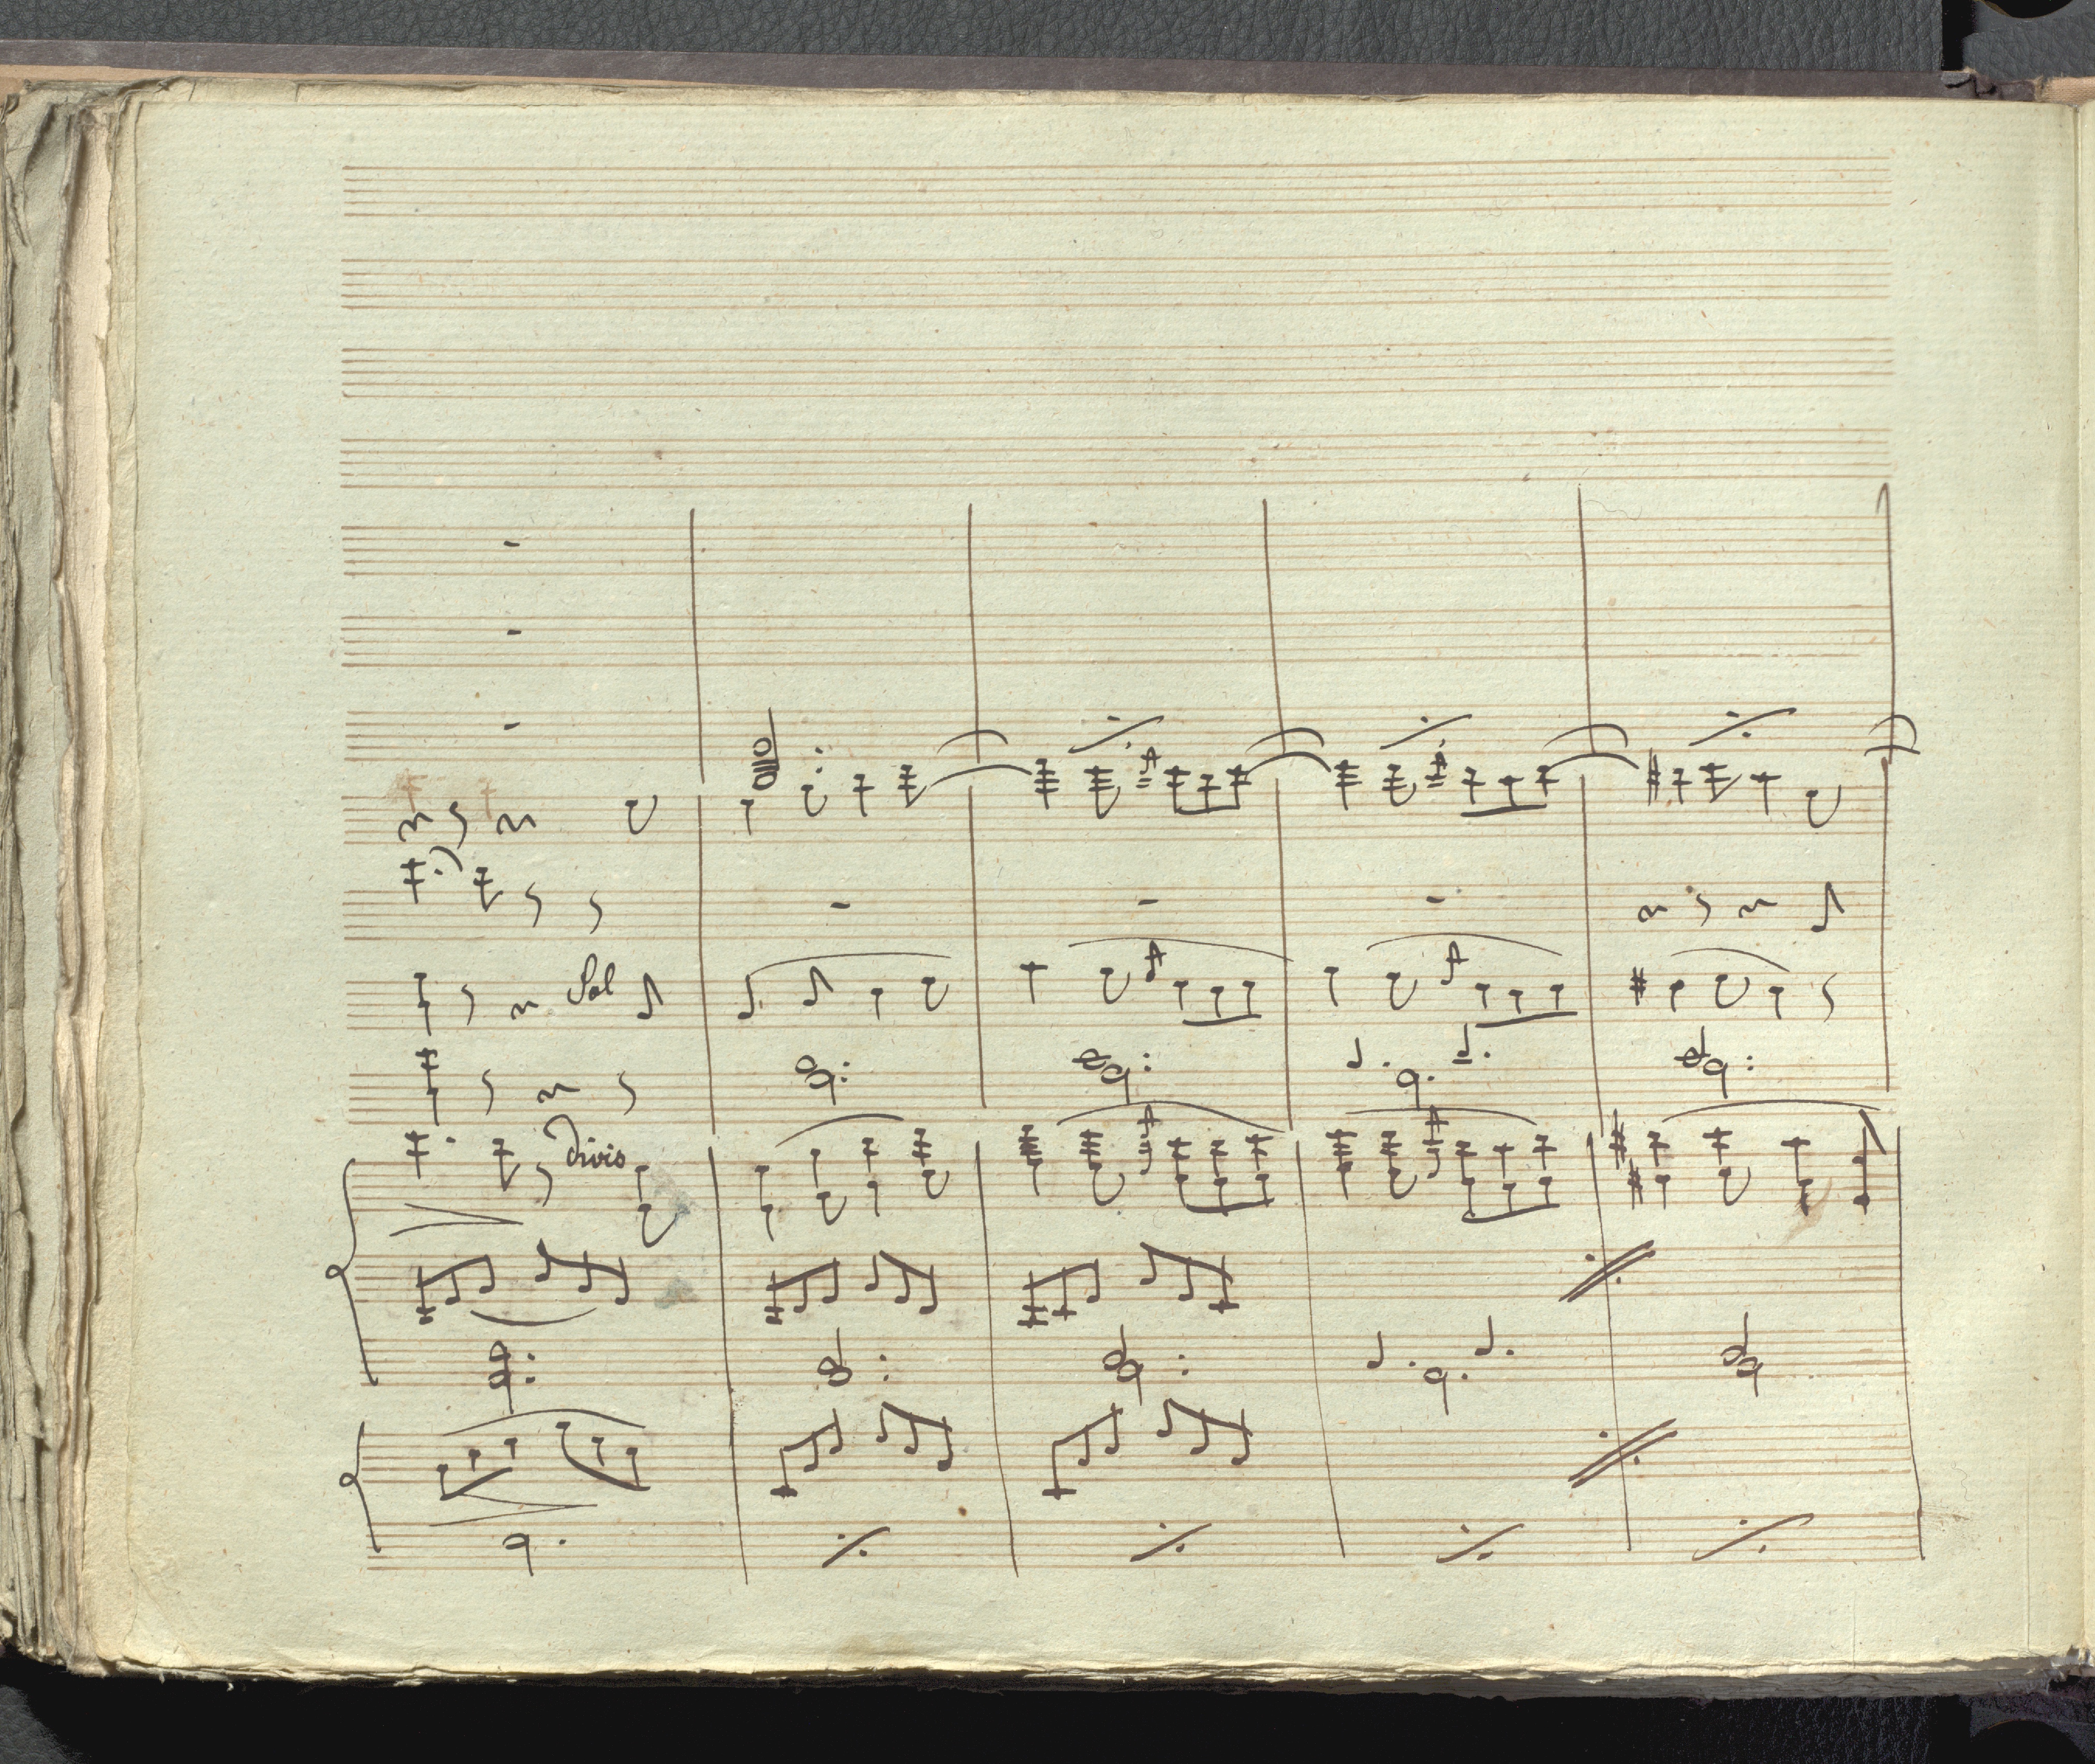 Sol
divis